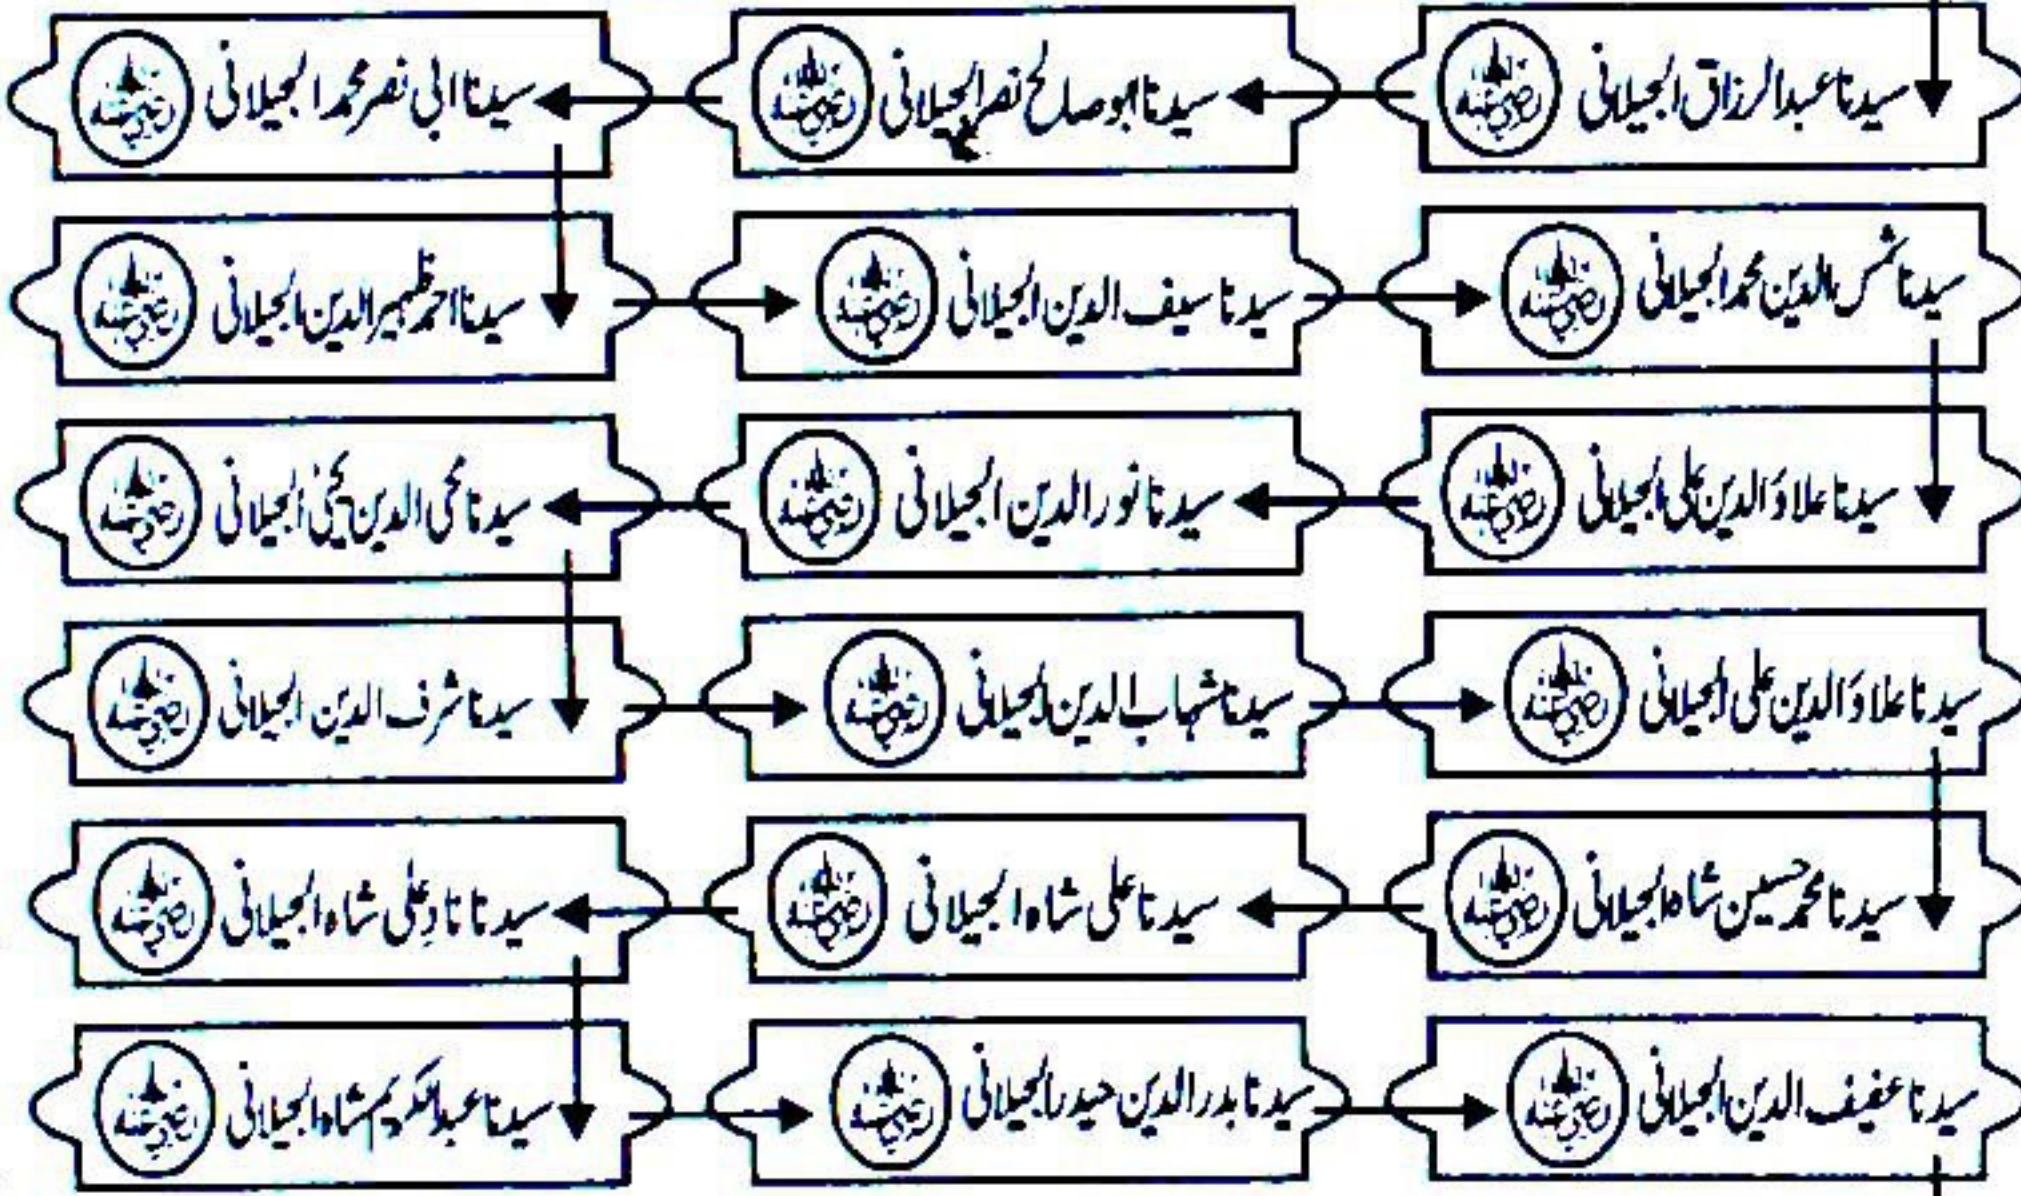 سیدنا عبدالرزاق الجیلانی رضی اللہ عنہ
سیدنا ابو صالح نصر الجیلانی رضی اللہ عنہ
سیدنا ابی نصر محمد الجیلانی رضی اللہ عنہ
سیدنا احمد ظہیر الدین الجیلانی رضی اللہ عنہ
سیدنا سیف الدین الجیلانی رضی اللہ عنہ
سیدنا شمس الدین محمد الجیلانی رضی اللہ عنہ
سیدنا علاؤ الدین علی الجیلانی رضی اللہ عنہ
سیدنا نور الدین الجیلانی رضی اللہ عنہ
سیدنا محی الدین یحییٰ الجیلانی رضی اللہ عنہ
سیدنا شرف الدین الجیلانی رضی اللہ عنہ
سیدنا شہاب الدین الجیلانی رضی اللہ عنہ
سیدنا علاؤ الدین علی الجیلانی رضی اللہ عنہ
سیدنا محمد حسین شاہ الجیلانی رضی اللہ عنہ
سیدنا علی شاہ الجیلانی رضی اللہ عنہ
سیدنا نادِ علی شاہ الجیلانی رضی اللہ عنہ
سیدنا عبدالکریم شاہ الجیلانی رضی اللہ عنہ
سیدنا بدر الدین حیدر الجیلانی رضی اللہ عنہ
سیدنا عفیف الدین الجیلانی رضی اللہ عنہ